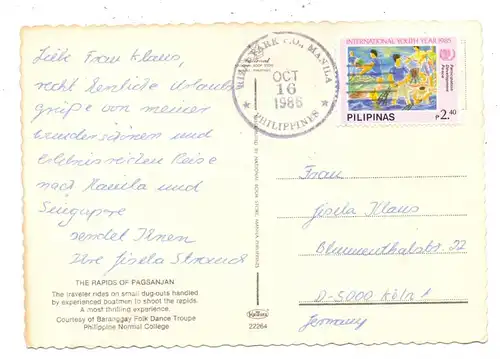 Liebe Frau Klaus,
recht herzliche Urlaubs
grüße von meiner
wunderschönen und
erlebnisreichen Reise
nach Manila und
Singapore
sendet Ihnen
Ihre Gisela
THE RAPIDS OF PAGSANJAN
The traveler rides on small dug-outs handled
by experienced boatmen to shoot the rapids.
A most thrilling experience.
Courtesy of Baranggay Folk Dance Troupe
Philippine Normal College
22264
RIZAL PARK P.O., MANILA
OCT
16
1986
PHILIPPINES
INTERNATIONAL YOUTH YEAR 1985
Participation
Development
Peace
PILIPINAS
P2.40
Frau
Gisela Klaus
Blumenthalstr. 22
D-5000 Köln 1
Germany